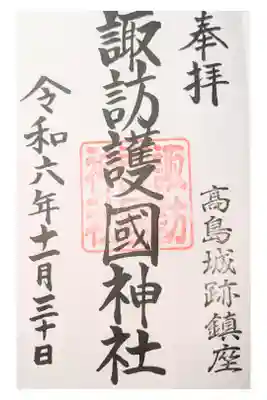 奉拝
高島城跡鎮座
諏訪護國神社
諏訪
神社
令和六年十一月三十日